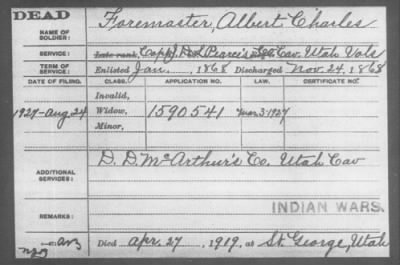 DEAD
NAME OF SOLDIER: Foremaster, Albert Charles
SERVICE: Late rank, Capt J. D. L. Pearce's Co. Cav. Utah Vols
TERM OF SERVICE: Enlisted Jan., 1868 Discharged Nov. 24, 1868
DATE OF FILING. CLASS. APPLICATION NO. LAW. CERTIFICATE NO.
Invalid,
1927-Aug 24 Widow, 1590541 Mar. 3-1927
Minor,
ADDITIONAL SERVICES: D. D. McArthur's Co. Utah Cav
INDIAN WARS.
REMARKS:
Died Apr. 27, 1919, at St. George, Utah